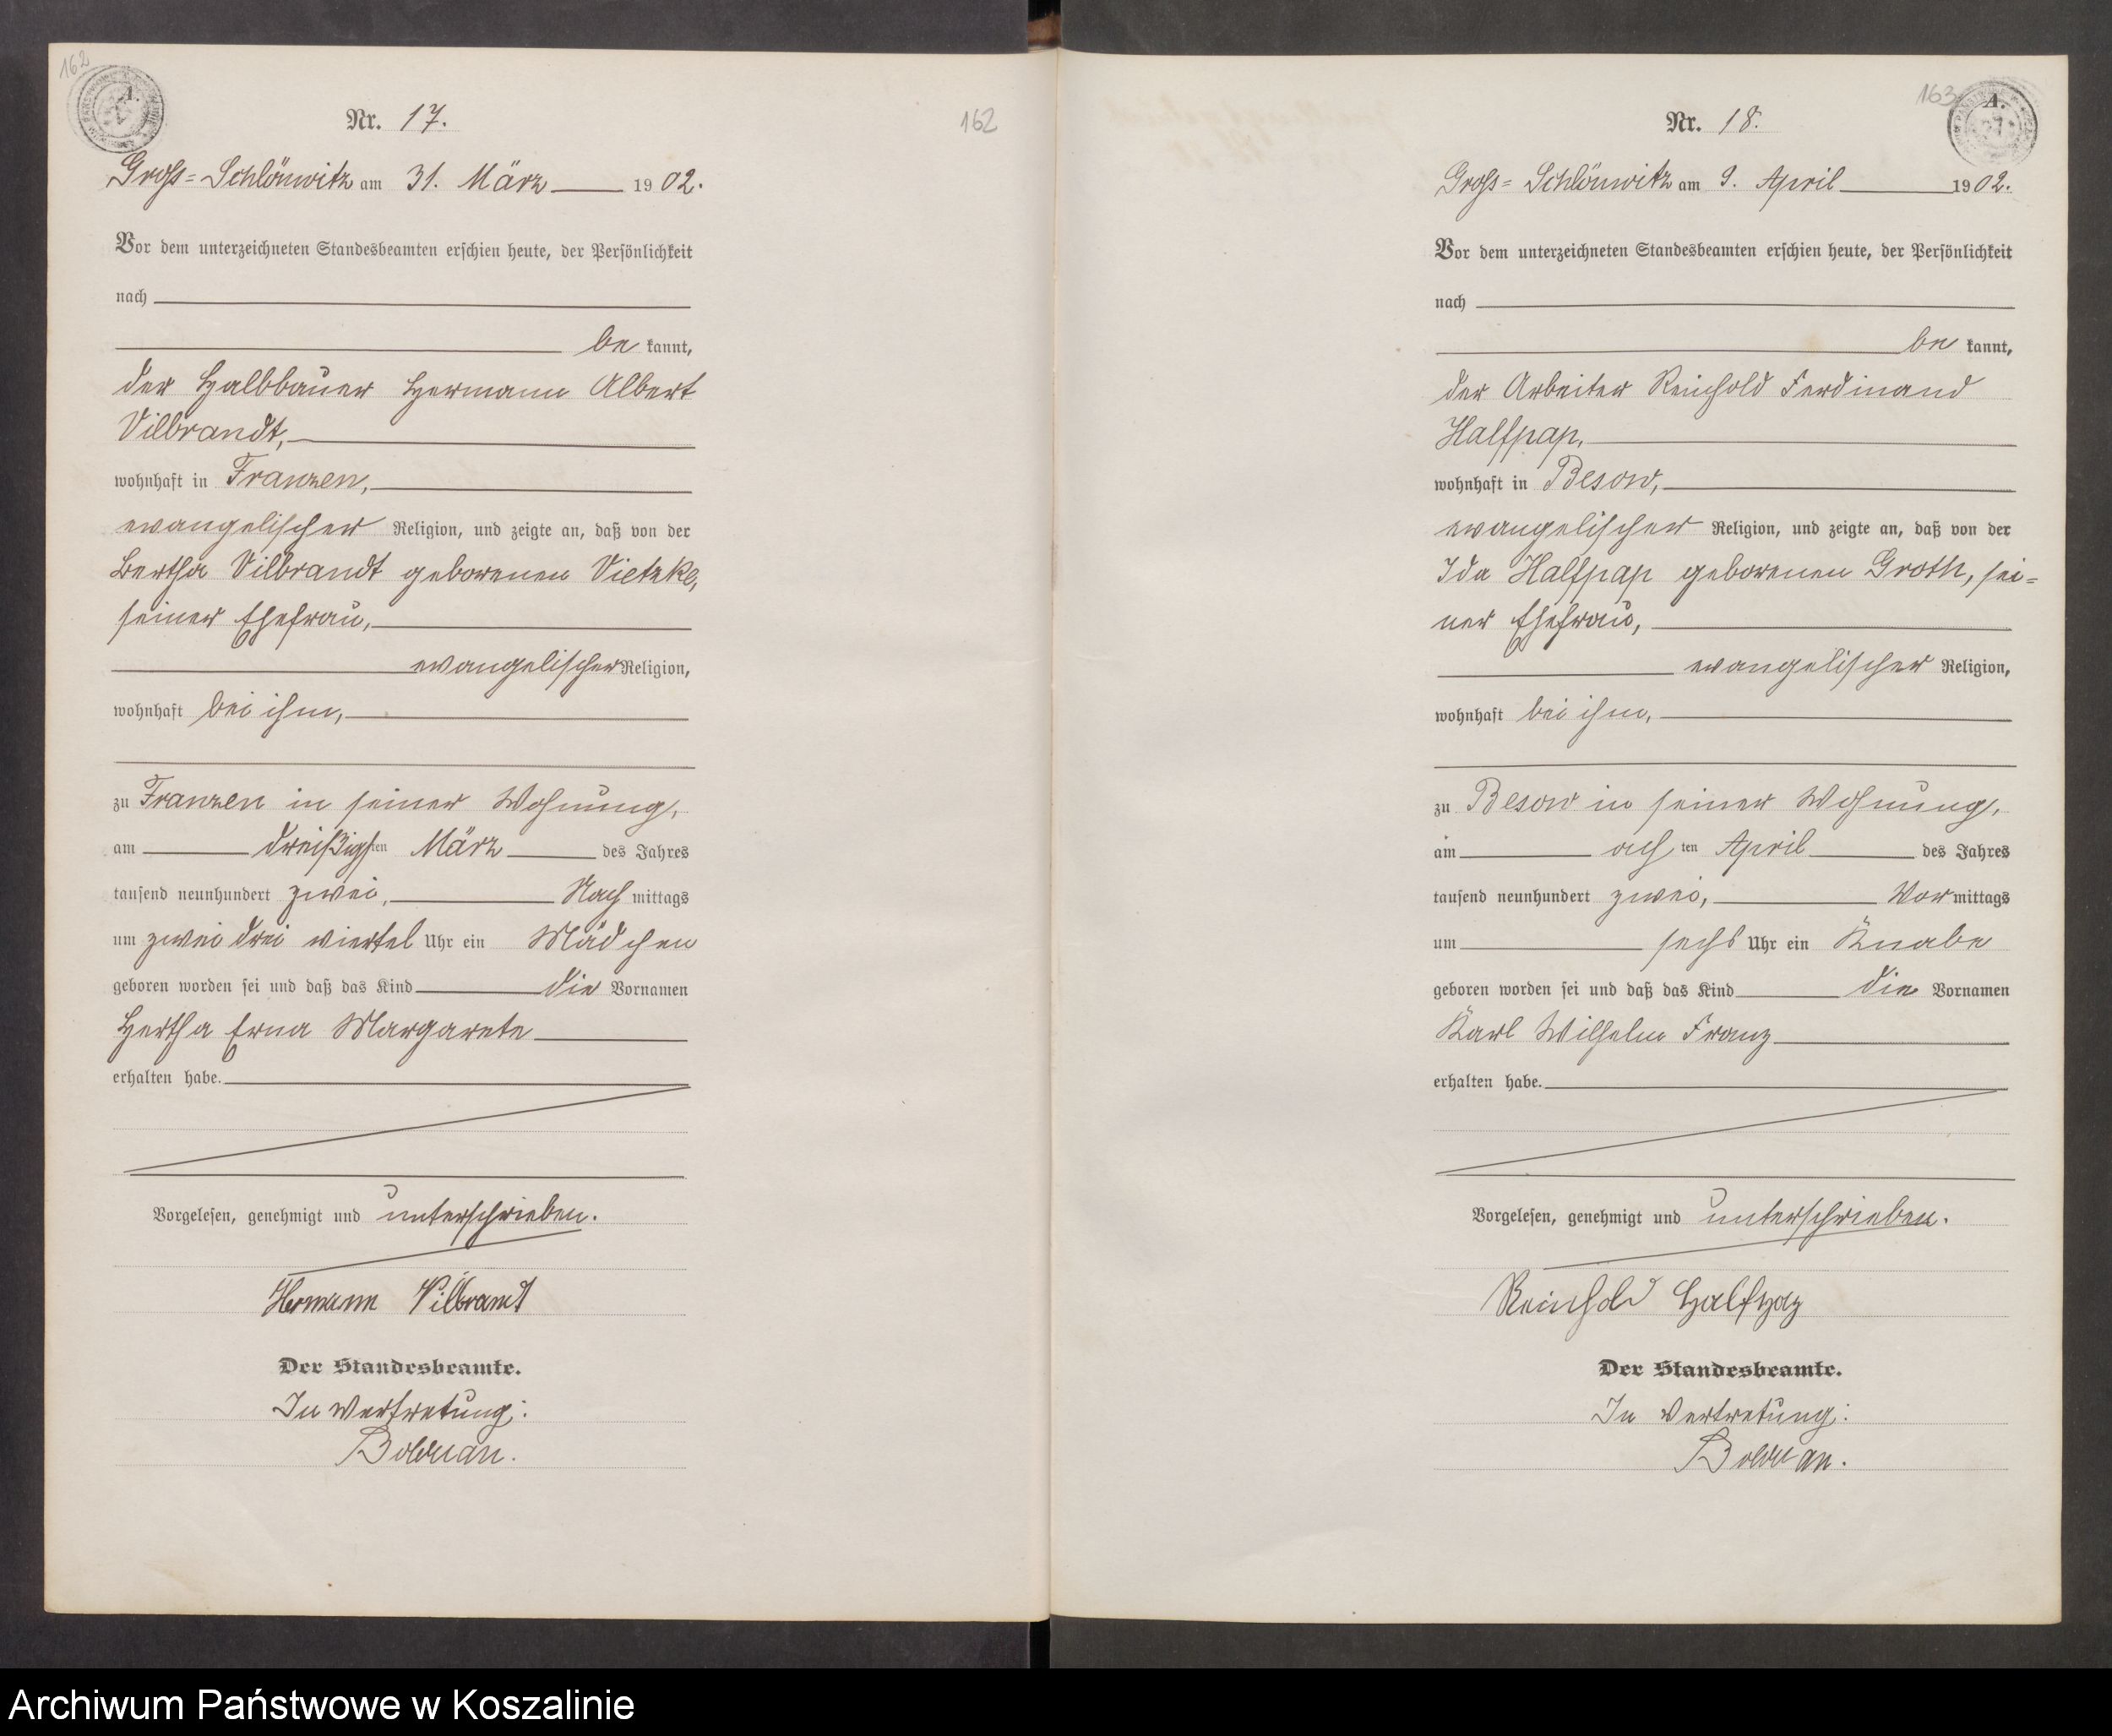 162
A.
Nr. 17.
Gross=Schlönwitz am 31. März 1902.
Vor dem unterzeichneten Standesbeamten erschien heute, der Persönlichkeit
nach
be kannt,
der Halbbauer Hermann Albert
Vilbrandt,
wohnhaft in Franzen,
evangelischer Religion, und zeigte an, daß von der
Bertha Vilbrandt geborenen Vietzke,
seiner Ehefrau,
evangelischer Religion,
wohnhaft bei ihm,
zu Franzen in seiner Wohnung,
am dreißigsten März des Jahres
tausend neunhundert zwei, Nachmittags
um zwei drei viertel Uhr ein Mädchen
geboren worden sei und daß das Kind die Vornamen
Hertha Erna Margarete
erhalten habe.
Vorgelesen, genehmigt und unterschrieben.
Hermann Vilbrandt
Der Standesbeamte.
In Vertretung:
Bolduan.
162
163
A.
Nr. 18.
Gross=Schlönwitz am 9. April 1902.
Vor dem unterzeichneten Standesbeamten erschien heute, der Persönlichkeit
nach
be kannt,
der Arbeiter Reinhold Ferdinand
Halfpap,
wohnhaft in Besow,
evangelischer Religion, und zeigte an, daß von der
Ida Halfpap geborenen Groth, sei=
ner Ehefrau,
evangelischer Religion,
wohnhaft bei ihm,
zu Besow in seiner Wohnung,
am achten April des Jahres
tausend neunhundert zwei, Vormittags
um sechs Uhr ein Knabe
geboren worden sei und daß das Kind die Vornamen
Karl Wilhelm Franz
erhalten habe.
Vorgelesen, genehmigt und unterschrieben.
Reinhold Halfpap
Der Standesbeamte.
In Vertretung:
Bolduan.
Archiwum Państwowe w Koszalinie